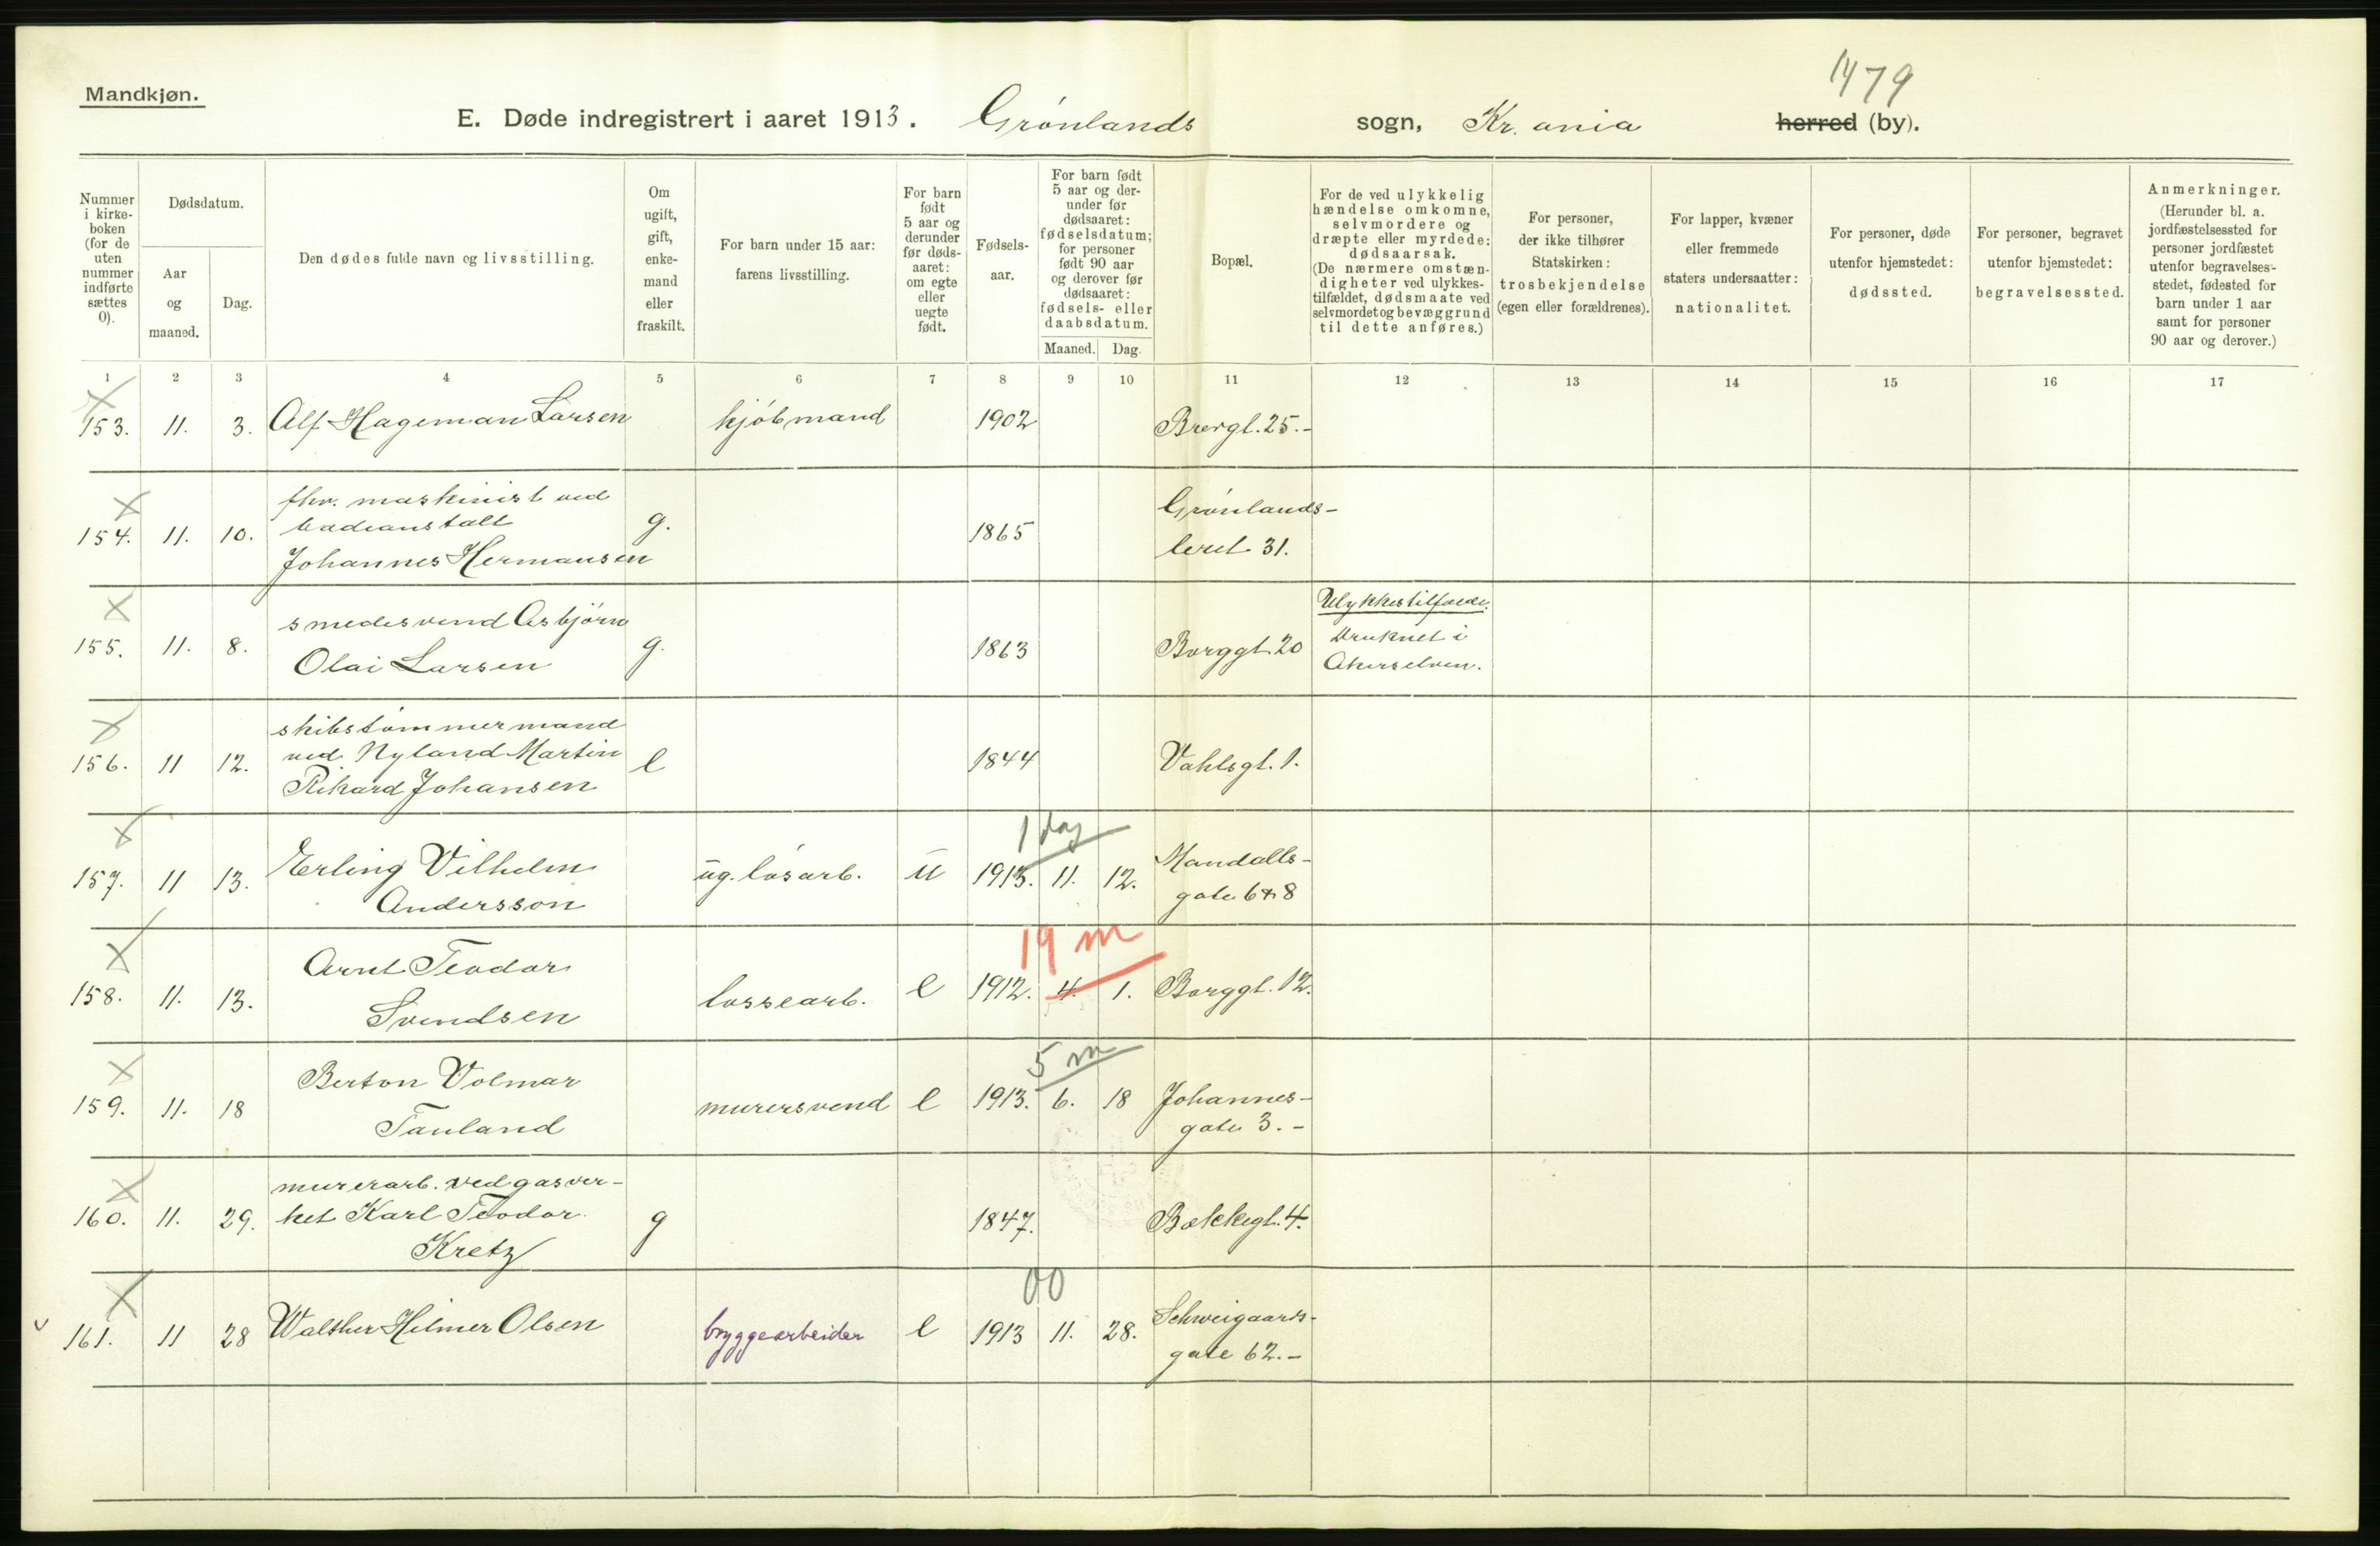 1479
Mandkjøn.
E. Døde indregistrert i aaret 1913. Grönlands sogn, Kr.ania herred (by).
Nummer i kirkeboken (for de uten nummer indførte sættes 0).
Dødsdatum.
Aar og maaned.
Dag.
Den dødes fulde navn og livsstilling.
Om ugift, gift, enkemand eller fraskilt.
For barn under 15 aar: farens livsstilling.
For barn født 5 aar og derunder før dødsaaret: om egte eller uegte født.
Fødselsaar.
For barn født 5 aar og derunder før dødsaaret: fødselsdatum; for personer født 90 aar og derover før dødsaaret: fødsels- eller daabsdatum.
Maaned. Dag.
Bopæl.
For de ved ulykkelig hændelse omkomne, selvmordere og dræpte eller myrdede: dødsaarsak. (De nærmere omstændigheter ved ulykkestilfældet, dødsmaate ved selvmordet og bevæggrund til dette anføres.)
For personer, der ikke tilhører Statskirken: trosbekjendelse (egen eller forældrenes).
For lapper, kvæner eller fremmede staters undersaatter: nationalitet.
For personer, døde utenfor hjemstedet: dødssted.
For personer, begravet utenfor hjemstedet: begravelsessted.
Anmerkninger. (Herunder bl. a. jordfæstelsessted for personer jordfæstet utenfor begravelsesstedet, fødested for barn under 1 aar samt for personer 90 aar og derover.)
1 2 3 4 5 6 7 8 9 10 11 12 13 14 15 16 17
153. 11. 3. Alf Hageman Larsen kjöbmand 1902 Brergt. 25.-
fhv. maskinist ved
badeanstalt
Johannes Hermansen
154. 11. 10. g. 1865 Grönlands-
leret 31.
smedesvend Asbjörn
Olai Larsen
155. 11. 8. g. 1863 Borggt. 20
Ulykkestilfælde.
Druknet i
Akerselven.
skibstömmermand
ved Nyland Martin
Rikard Johansen
156. 11 12. e 1844 Vahlsgt. 1.
1 dag
Erling Vilhelm
Andersson
157. 11 13. ug. lösarb. u 1913. 11. 12. Mandalls-
gate 6 & 8
19 m
Arnt Teodor
Svendsen
158. 11. 13. lossearb. e 1912. 4. 1. Borggt. 12.
5 m
Berton Volmar
Tauland
159. 11. 18 murersvend e 1913. 6. 18 Johannes-
gate 3.-
murerarb. ved gasver-
ket Karl Teodor
Kretz
160. 11. 29. g 1847. Bakkegt. 4.
00
161. 11 28 Walther Hilmer Olsen bryggearbeider e 1913 11. 28. Schweigaards-
gate 62.-